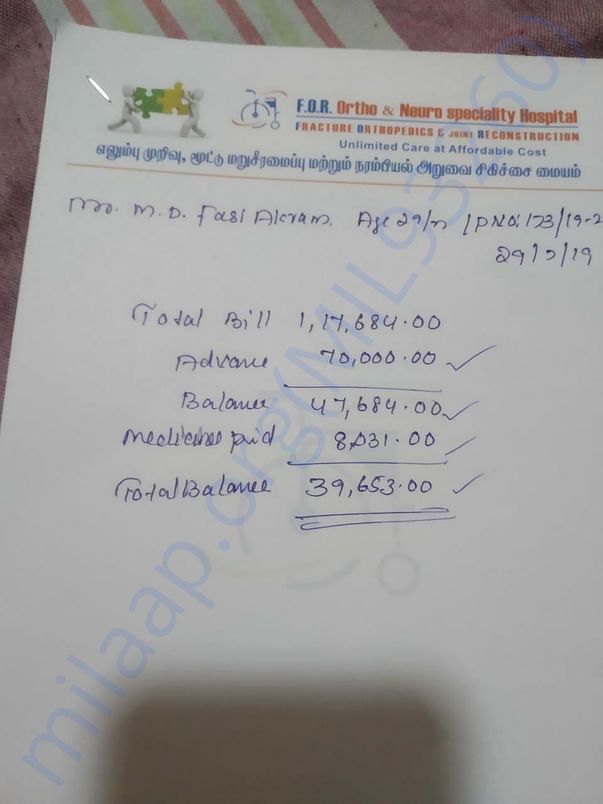 F.O.R. Ortho & Neuro speciality Hospital
FRACTURE ORTHOPEDICS & JOINT RECONSTRUCTION
Unlimited Care at Affordable Cost
எலும்பு முறிவு, மூட்டு மறுசீரமைப்பு மற்றும் நரம்பியல் அறுவை சிகிச்சை மையம்
M.D. Fasi Akram. Age 29/m IPNO: 173/19-2
29/ /19
Total Bill 1,17,684.00
Advance 70,000.00
Balance 47,684.00
Medicines paid 8,031.00
Total Balance 39,653.00
milaap.org(MIL93260)